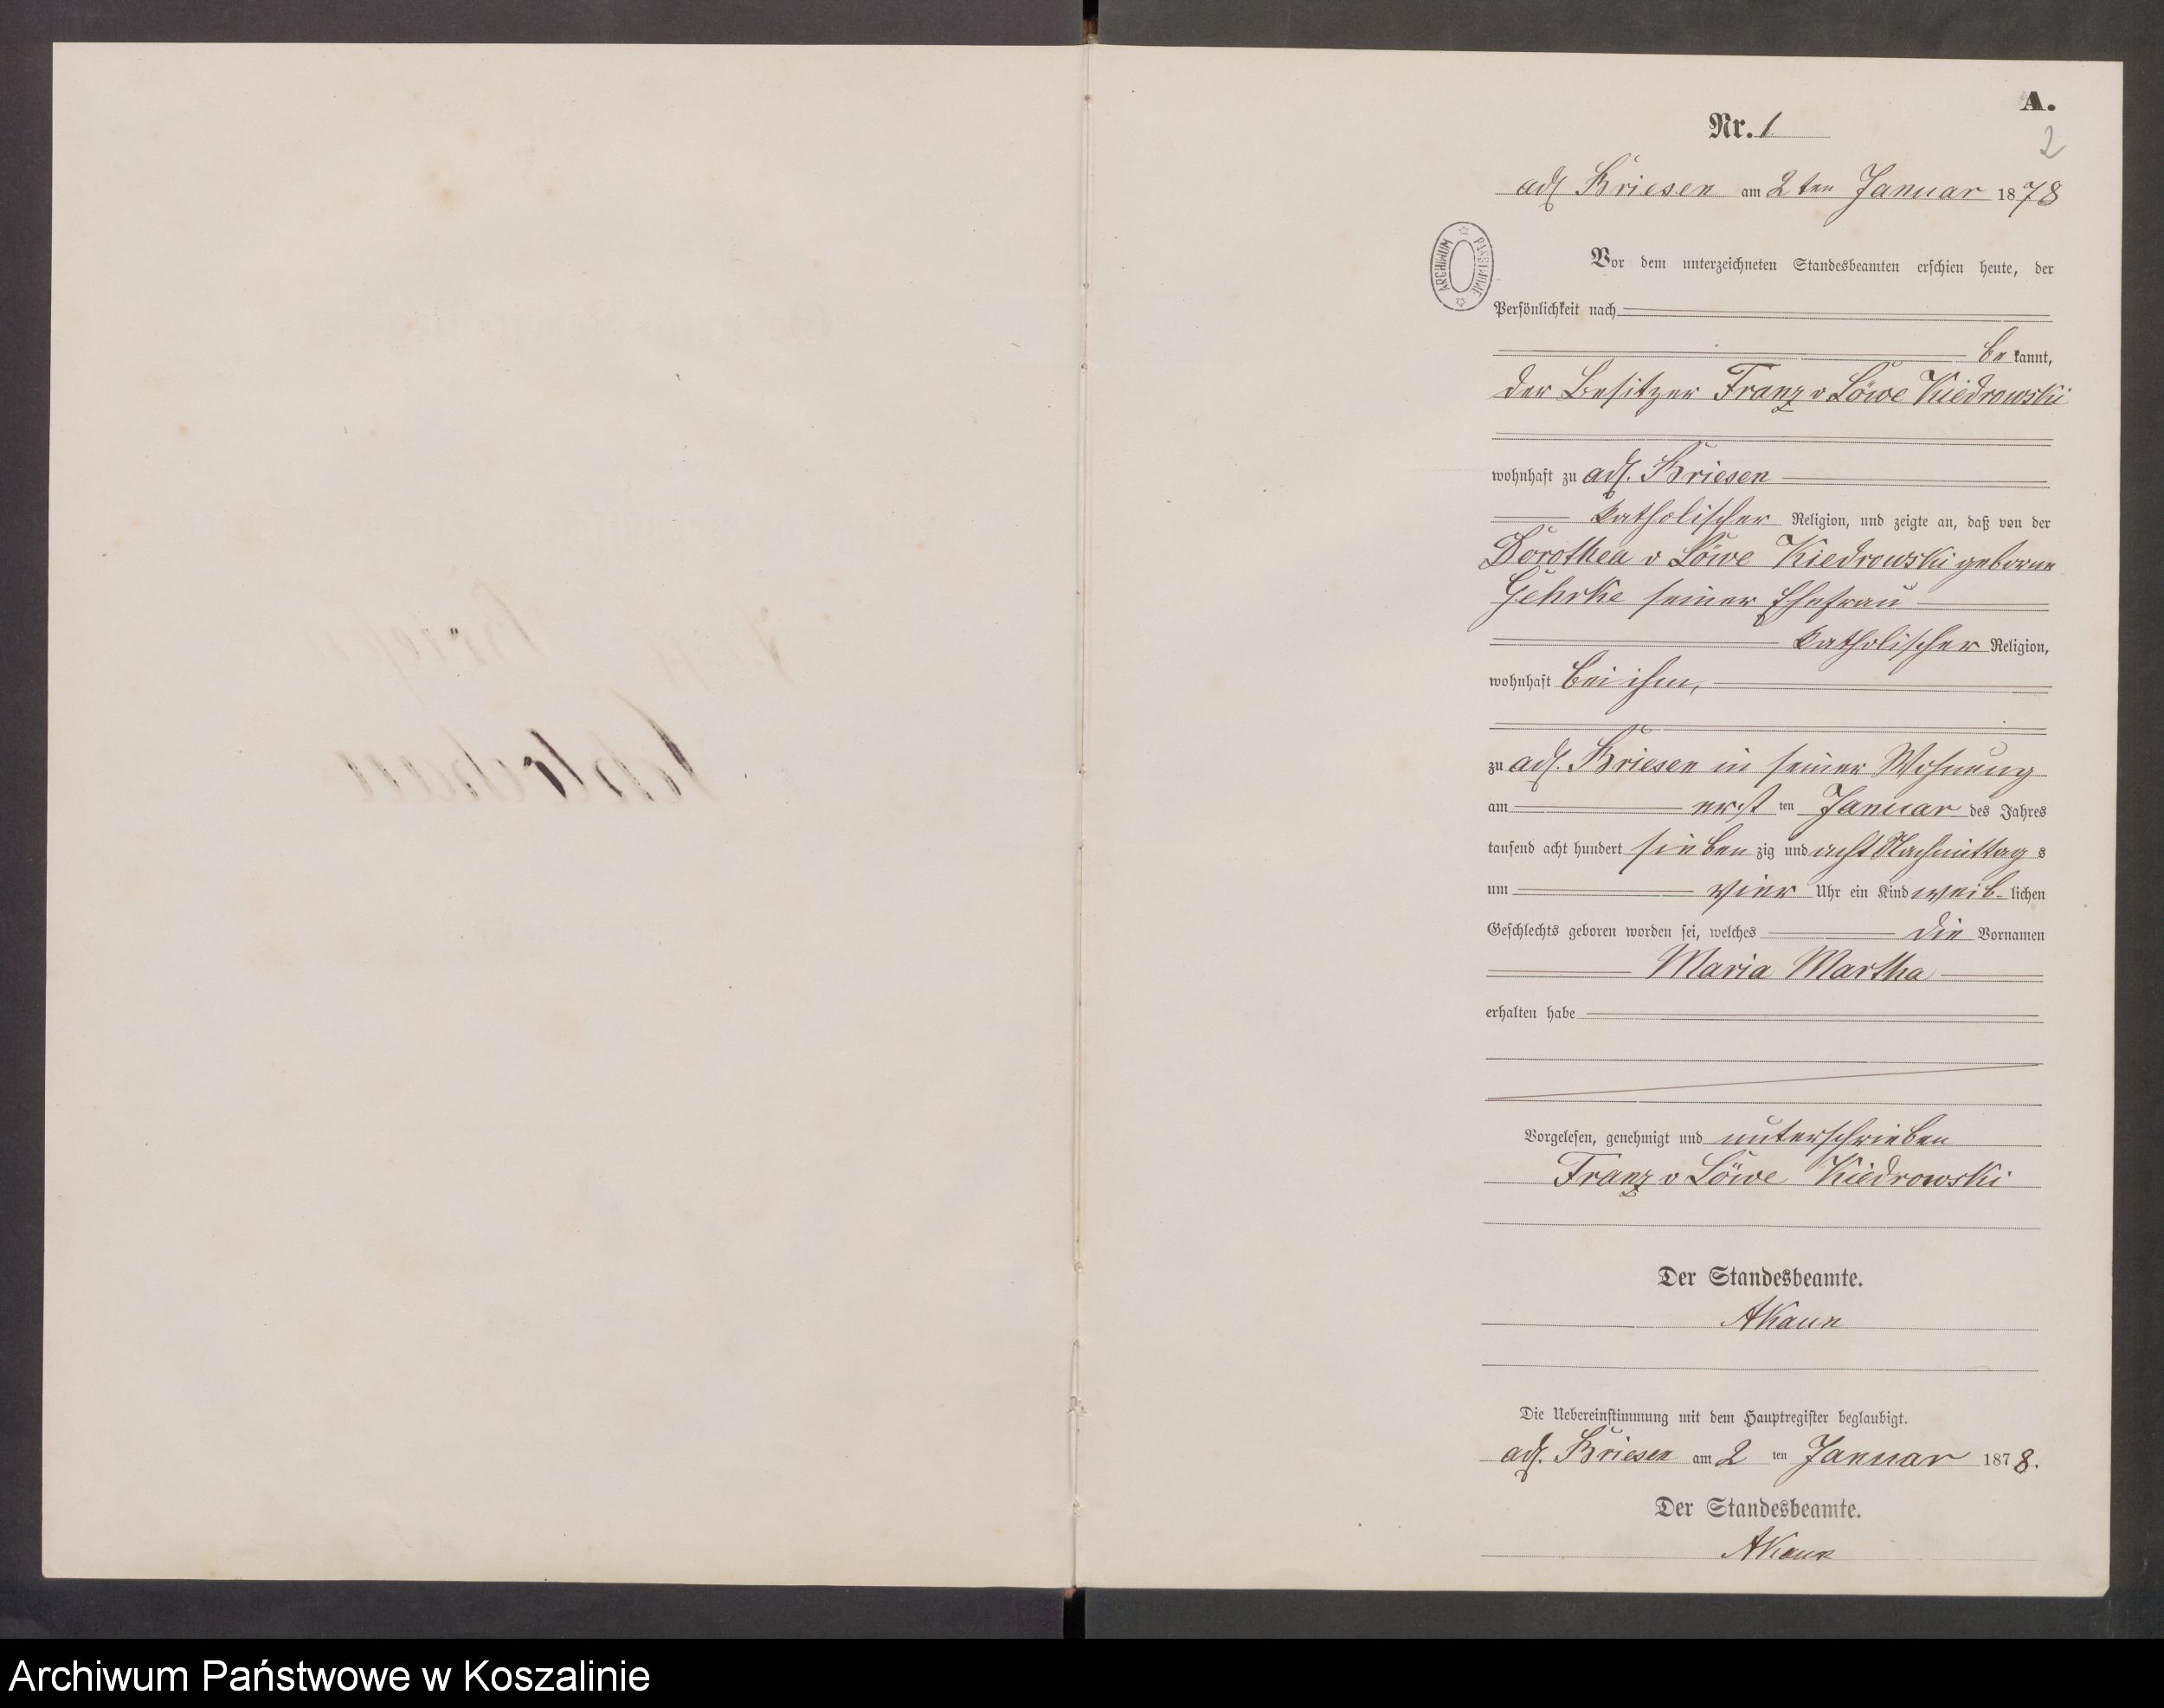 A.
Nr. 1
2
adl Briesen am 2ten Januar 1878
ARCHIWUM PAŃSTWOWE
Vor dem unterzeichneten Standesbeamten erschien heute, der
Persönlichkeit nach
bekannt,
der Besitzer Franz v Löwe Kiedrowski
wohnhaft zu adl. Briesen
katholischer Religion, und zeigte an, daß von der
Dorothea v Löwe Kiedrowski geborne
Gehrke seiner Ehefrau
katholischer Religion,
wohnhaft bei ihm,
zu adl. Briesen in seiner Wohnung
am ersten Januar des Jahres
tausend acht hundert siebenzig und acht Nachmittags
um vier Uhr ein Kind weib-lichen
Geschlechts geboren worden sei, welches die Vornamen
Maria Martha
erhalten habe
Vorgelesen, genehmigt und unterschrieben
Franz v Löwe Kiedrowski
Der Standesbeamte.
Die Uebereinstimmung mit dem Hauptregister beglaubigt.
adl. Briesen am 2ten Januar 1878.
Der Standesbeamte.
Archiwum Państwowe w Koszalinie